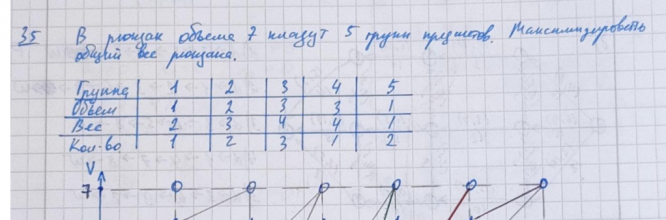 35 В рюкзак объема 7 кладут 5 групп предметов. Максимизировать
общий вес рюкзака.
Группа 1 2 3 4 5
Объем 1 2 3 3 1
Вес 2 3 4 4 1
Кол-во 1 2 3 1 2
V
7